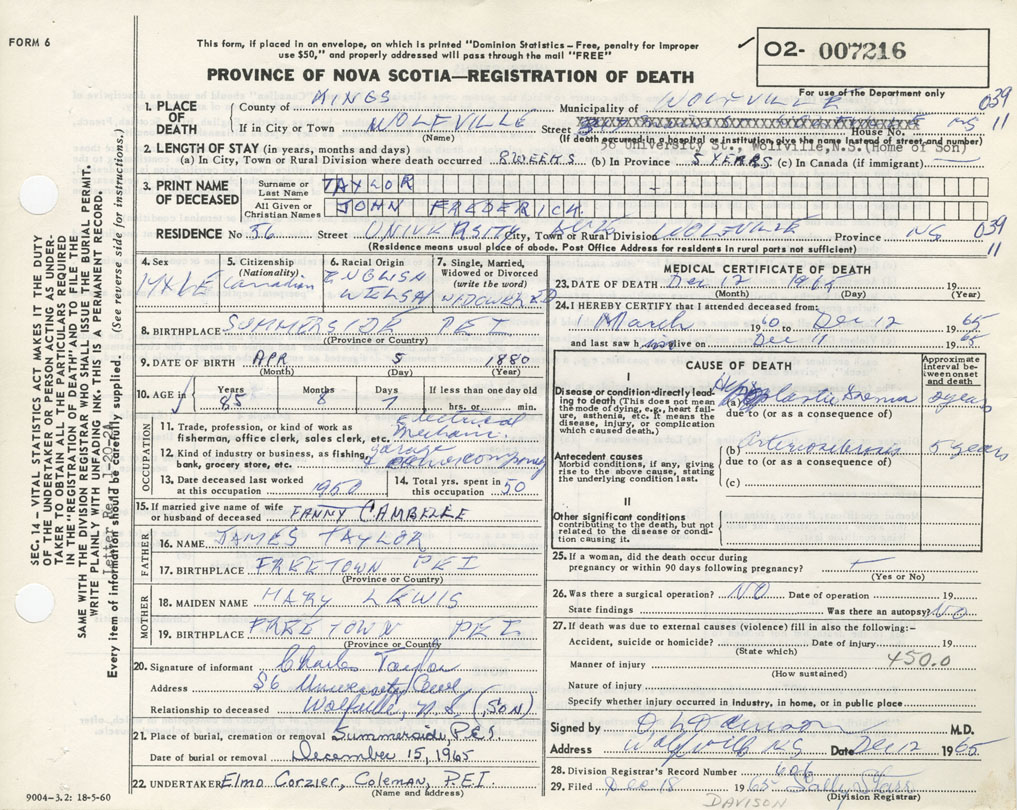 FORM 6
This form, if placed in an envelope, on which is printed "Dominion Statistics – Free, penalty for improper
use $50," and properly addressed will pass through the mail "FREE"
✓ 02- 007216
PROVINCE OF NOVA SCOTIA—REGISTRATION OF DEATH
For use of the Department only
039
11
1. PLACE OF DEATH
County of KINGS Municipality of WOLFVILLE
If in City or Town WOLFVILLE Street House No. NS
(Name) (If death occurred in a hospital or institution, give the name instead of street and number)
56 University St., Wolfville, N.S. (Home of Son)
2. LENGTH OF STAY (in years, months and days)
(a) In City, Town or Rural Division where death occurred 8 WEEKS (b) In Province 5 YEARS (c) In Canada (if immigrant)
3. PRINT NAME OF DECEASED
Surname or Last Name TAYLOR
All Given or Christian Names JOHN FREDERICK
RESIDENCE No. 56 Street UNIVERSITY AVE City, Town or Rural Division WOLFVILLE Province NS 039
11
(Residence means usual place of abode. Post Office Address for residents in rural parts not sufficient)
4. Sex MALE
5. Citizenship (Nationality). Canadian
6. Racial Origin ENGLISH WELSH
7. Single, Married, Widowed or Divorced (write the word) WIDOWERED
8. BIRTHPLACE SUMMERSIDE PEI
(Province or Country)
9. DATE OF BIRTH APR 5 1880
(Month) (Day) (Year)
10. AGE in Years 85 Months 8 Days 7 If less than one day old
hrs. or min.
OCCUPATION
11. Trade, profession, or kind of work as fisherman, office clerk, sales clerk, etc. electrical mechanic
12. Kind of industry or business, as fishing, bank, grocery store, etc. garage
13. Date deceased last worked at this occupation 1960
14. Total yrs. spent in this occupation 50
15. If married give name of wife or husband of deceased FANNY
FATHER
16. NAME JAMES TAYLOR
17. BIRTHPLACE FREETOWN PEI
(Province or Country)
MOTHER
18. MAIDEN NAME MARY LEWIS
19. BIRTHPLACE FREETOWN PEI
(Province or Country)
20. Signature of informant Charles Taylor
Address 56 University
Wolfville, N.S.
Relationship to deceased (SON)
21. Place of burial, cremation or removal Summerside, P.E.I.
Date of burial or removal December 15, 1965
22. UNDERTAKER Elmo Corzier, Coleman, P.E.I.
(Name and address)
MEDICAL CERTIFICATE OF DEATH
23. DATE OF DEATH Dec 12 1965 19
(Month) (Day) (Year)
24. I HEREBY CERTIFY that I attended deceased from:
1 March 1960 to Dec 12 1965
and last saw him alive on Dec 11 1965
CAUSE OF DEATH
Approximate interval between onset and death
I
Disease or condition directly leading to death (This does not mean the mode of dying, e.g., heart failure, asthenia, etc. It means the disease, injury, or complication which caused death.)
(a) 2 years
due to (or as a consequence of)
Antecedent causes
Morbid conditions, if any, giving rise to the above cause, stating the underlying condition last.
(b) Arteriosclerosis 5 years
due to (or as a consequence of)
(c)
II
Other significant conditions
contributing to the death, but not related to the disease or condition causing it.
25. If a woman, did the death occur during
pregnancy or within 90 days following pregnancy?
(Yes or No)
26. Was there a surgical operation? NO Date of operation 19
State findings Was there an autopsy? NO
27. If death was due to external causes (violence) fill in also the following:–
Accident, suicide or homicide? Date of injury 19
(State which) 450.0
Manner of injury
(How sustained)
Nature of injury
Specify whether injury occurred in Industry, in home, or in public place
Signed by M.D.
Address Wolfville N.S. Date Dec 12 1965
28. Division Registrar's Record Number 606
29. Filed Dec 18 1965 Sally Starr
(Division Registrar)
DAVISON
9004-3.2: 18-5-60
SEC. 14 – VITAL STATISTICS ACT MAKES IT THE DUTY
OF THE UNDERTAKER OR PERSON ACTING AS UNDER-
TAKER TO OBTAIN ALL THE PARTICULARS REQUIRED
IN THE "REGISTRATION OF DEATH" AND TO FILE THE
SAME WITH THE DIVISION REGISTRAR WHO SHALL ISSUE THE BURIAL PERMIT.
WRITE PLAINLY WITH UNFADING INK. THIS IS A PERMANENT RECORD.
Every item of information should be carefully supplied. (See reverse side for instructions.)